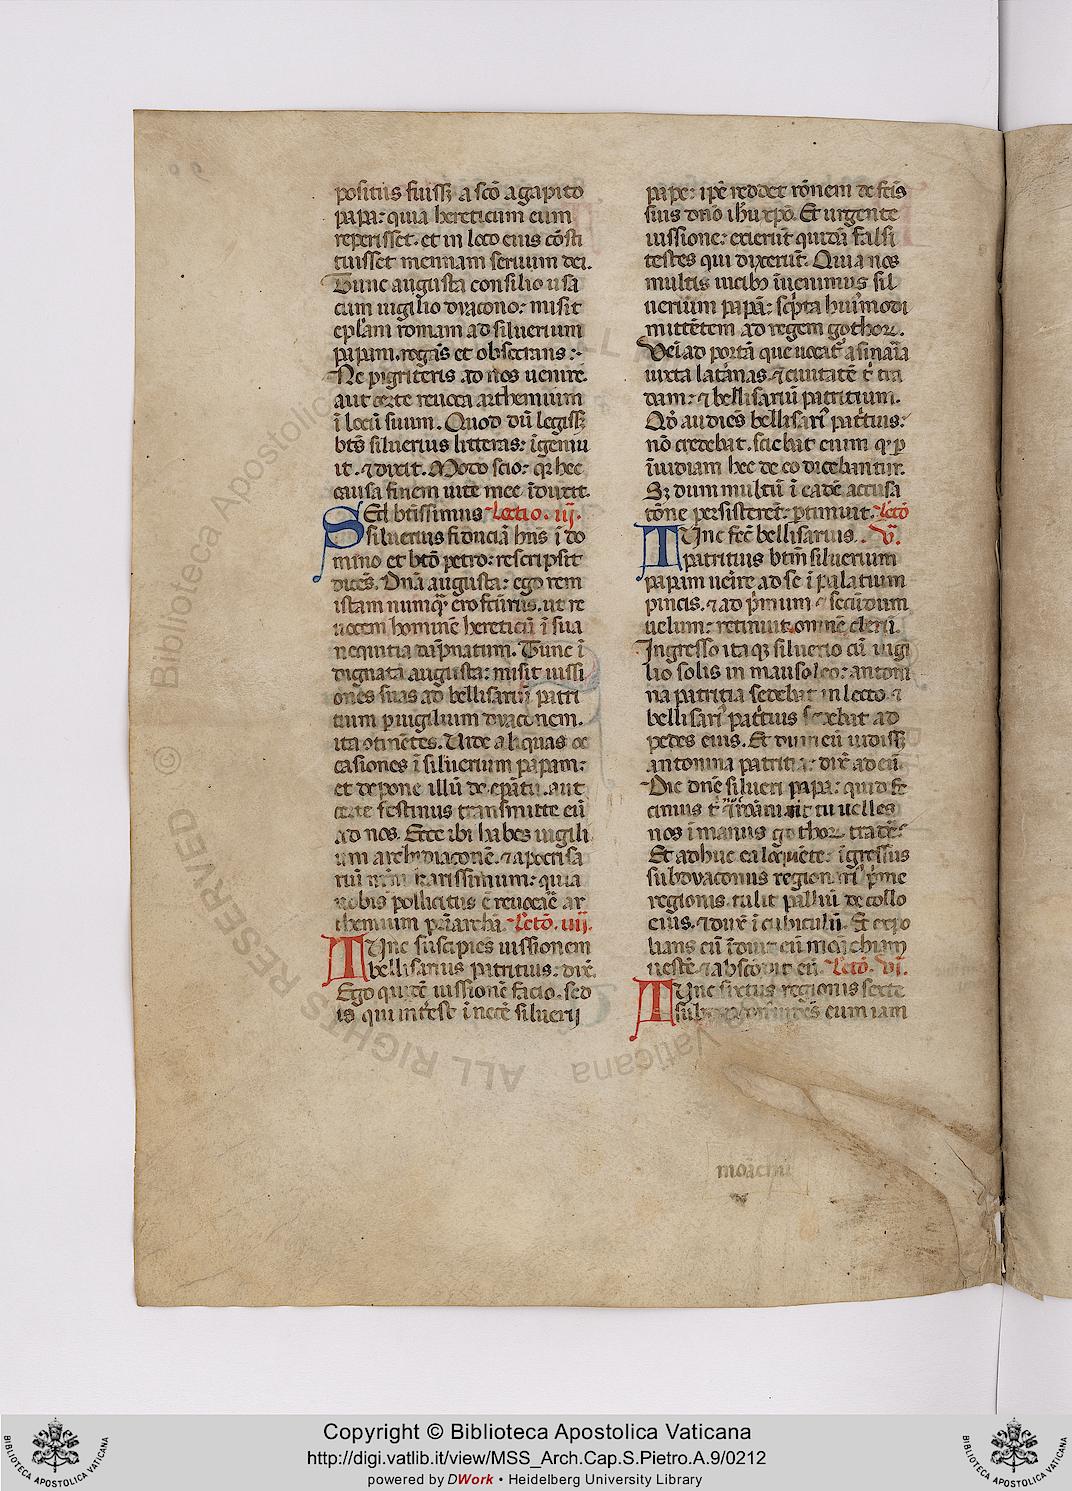 positus fuiss& a sc̄o agapito
papa: quia hereticum eum
reperisset. et in loco eius cōsti
tuisset mennam seruum dei.
Tunc augusta consilio usa
cum uigilio dyacono: misit
ep̄lam romam ad siluerium
papam. rogās et obsecrans :-
Ne pigriteris ad nos uenire.
aut certe reuoca arthemium
ī locū suum. Quod dū legiss&
btūs siluerius litteras: īgemu
it. ⁊ dixit. Modo scio: qr̄ hec
causa finem uite mee īduxit.
SEd btīssimus Lectio. iij.
siluerius fiduciā hn̄s ī do
mino et btō petro: rescripsit
dicēs. Dn̄a augusta: ego rem
istam numq̄ ero fcūrus. ut re
uocem hominē hereticū ī sua
nequitia dāpnatum. Tunc ī
dignata augusta: misit iussi
ones suas ad bellisariū patri
tium p uigilium dyaconem.
ita ↄtinētes. Uide aliquas oc
casiones ī siluerium papam:
et depone illū de ep̄atu. aut
certe festinus transmitte eū
ad nos. Ecce ibi habes uigili
um archidiaconē. ⁊ apocrisa
riū nr̄m karissimum: quia
nobis pollicitus ē reuocare ar
themium pr̄iarchā. Lectō. iiij.
TUnc suscipiēs iussionem
bellisarius patritius: dixit.
Ego quidē iussionē facio. sed
is qui int̄est ī necē siluerij
pape: ip̄e reddet rōnem de fc̄is
suis dn̄o ih̄u xp̄o. Et urgente
iussione: exierūt quidā falsi
testes qui dixerūt. Quia nos
multis uicibꝫ īuenimus sil
uerium papā: scp̄ta hui9modi
mittētem ad regem gothoꝝ.
Vei ad portā que uocat̄ asinaīa
iuxta latānas. ⁊ ciuitatē t̄ tra
dam: ⁊ bellisariū patritium.
Qd̄ audiēs bellisari9 patīus:
nō credebat. sciebat eum q̄ p
īuidiam hec de eo dicebantur.
Sꝫ dum multū ī eadē accusa
tōne persisterēt: ptimuit. Lectō
TUnc fec̄ bellisarius. V.
patritius btm̄ siluerium
papam ueīre ad se ī palatium
pincis. ⁊ ad p̄imum ⁊ secūdum
uelum: retinuit omnē clerū.
Ingresso itaqꝫ siluerio cū uigi
lio solis in mausoleo: antoni
na patritia sedebat in lecto ⁊
bellisari9 patīus sedebat ad
pedes eius. Et dum eū uidiss&
antonina patritia: dix̄ ad eū.
Dic dn̄e silueri papa: quid fe
cimus t̄ ⁊ rōanis ut tu uelles
nos ī manus gothoꝝ tradē:
Et adhuc ea loquēte: īgressus
subdyaconus regionari9 p̄me
regionis. tulit palliū de collo
eius. ⁊ duxit ī cubiculū. Et expo
lians eū īduit eū moāchicam
uestē. ⁊ abscōdit eū. Lectō. Vi.
TUnc sixtus regionis sexte
subdyacon9 uidēs eum iam
moāchū
Copyright © Biblioteca Apostolica Vaticana
http://digi.vatlib.it/view/MSS_Arch.Cap.S.Pietro.A.9/0212
powered by DWork • Heidelberg University Library